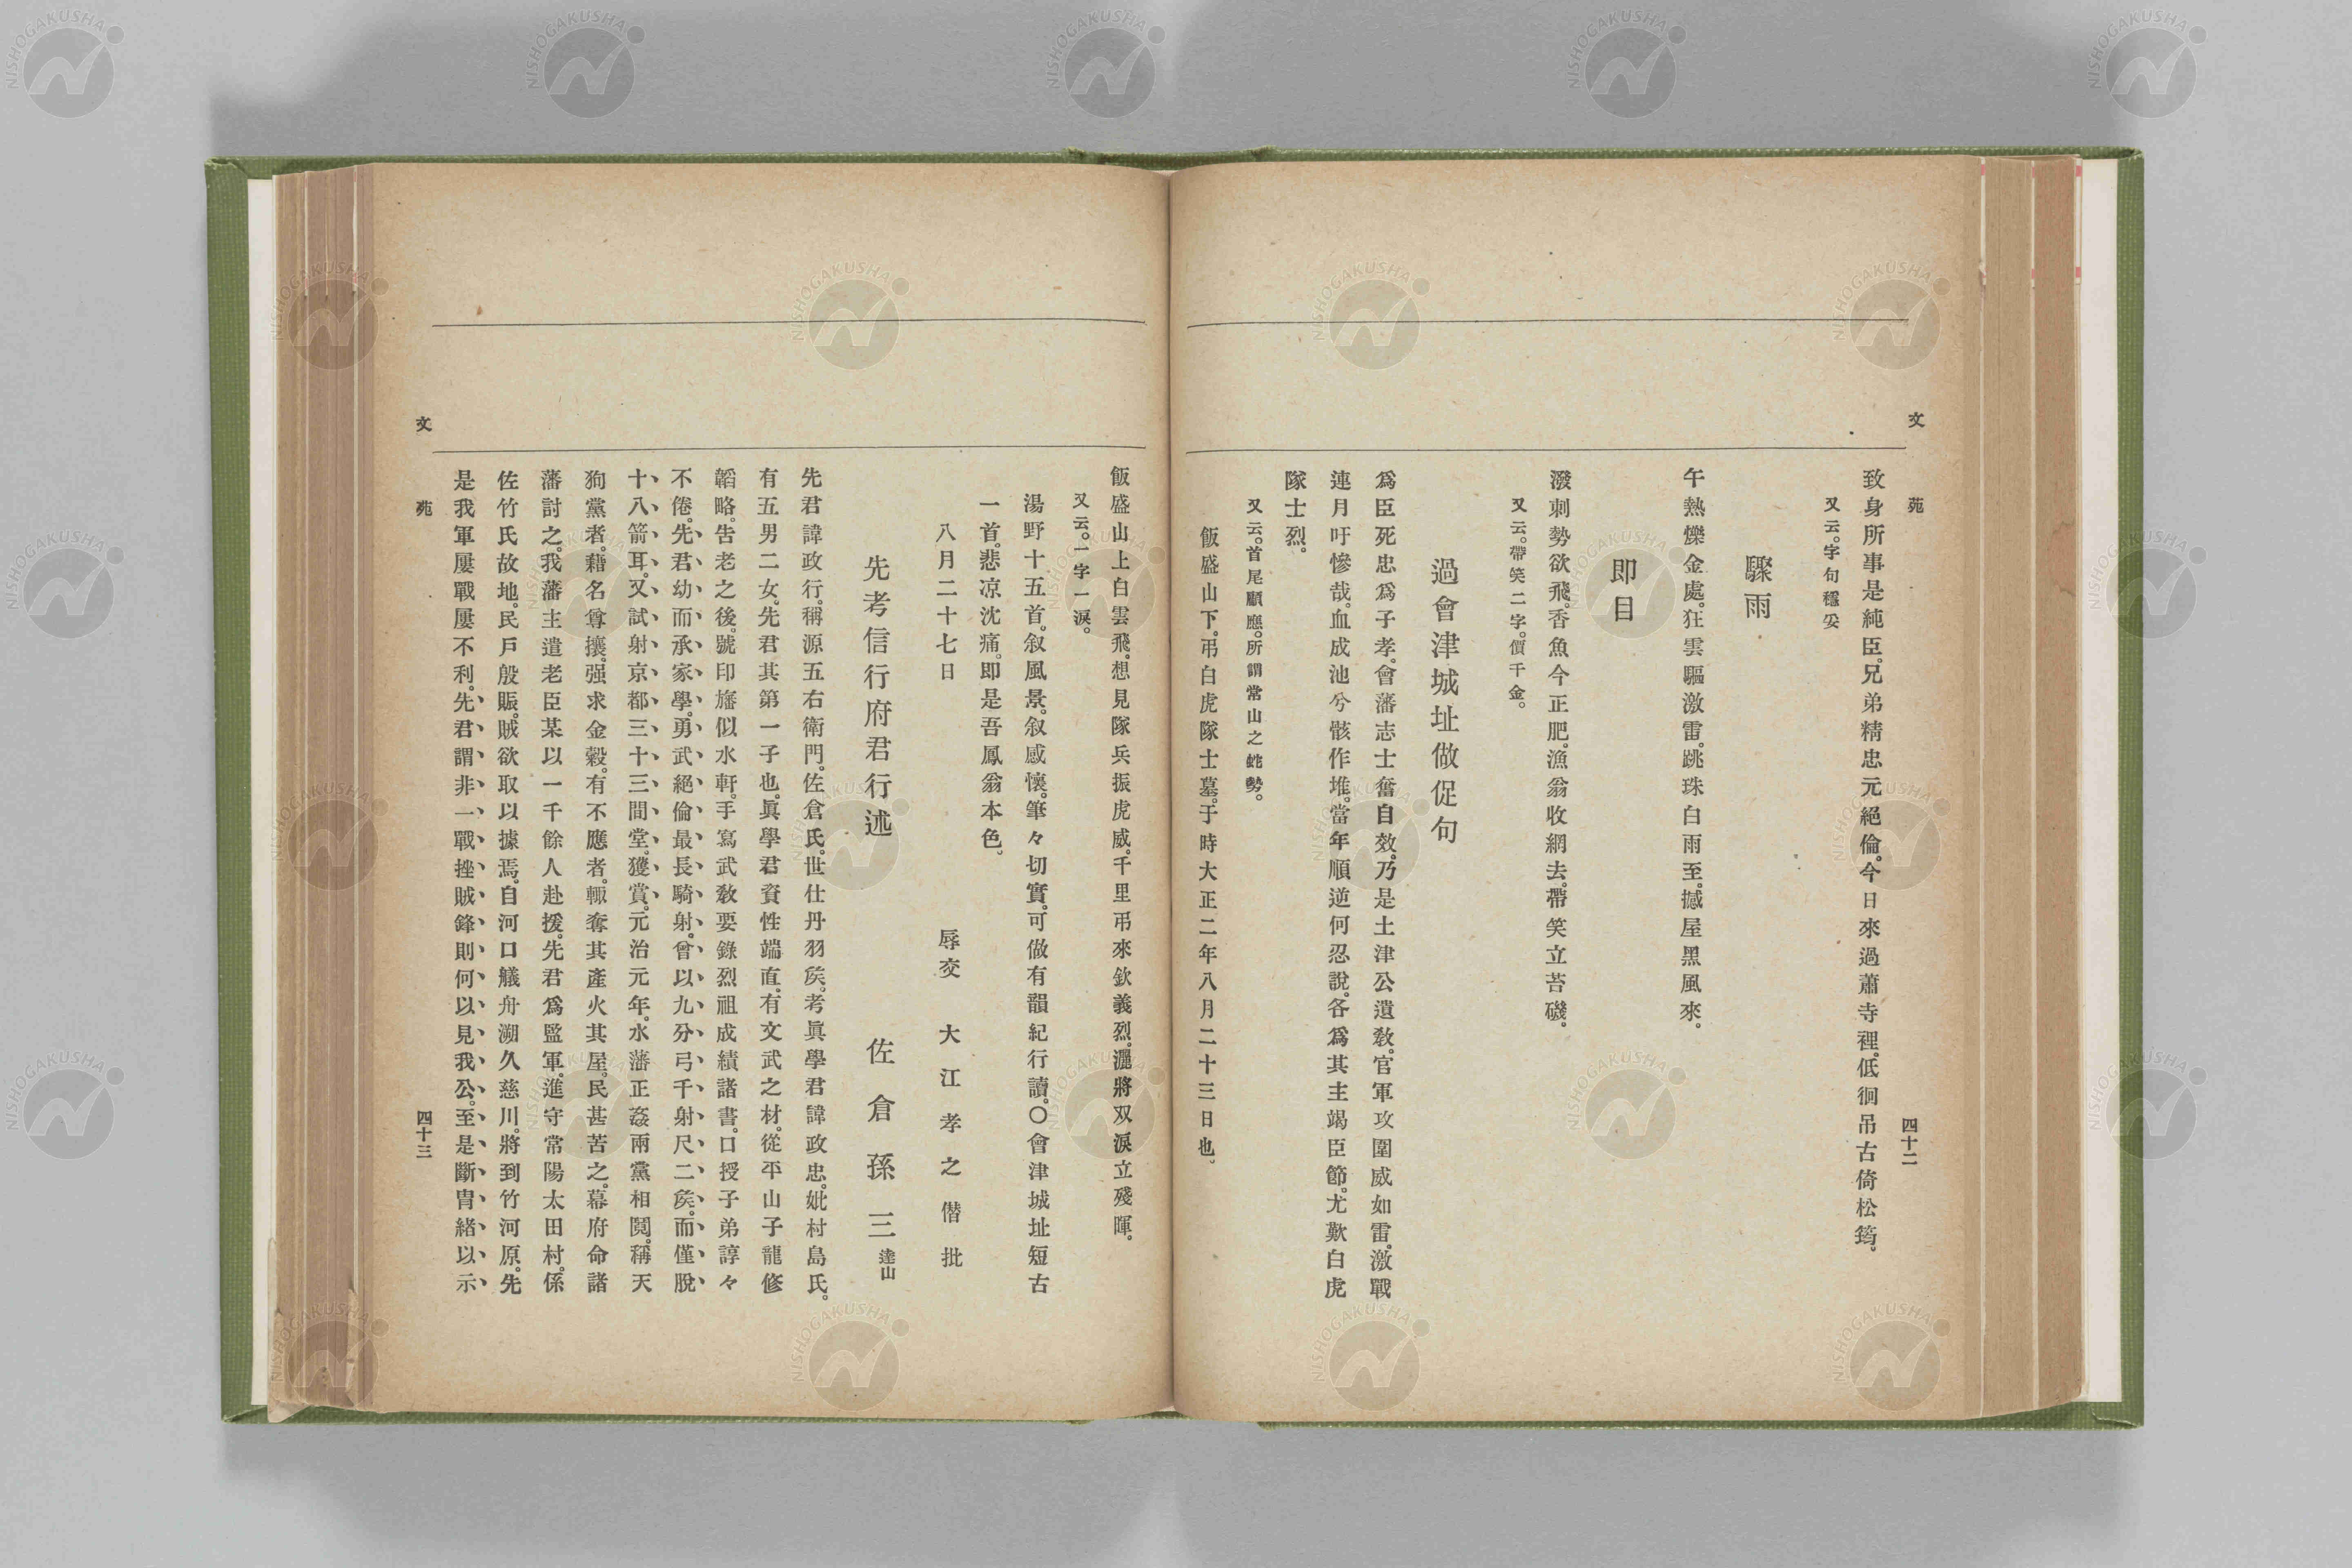 文苑 四十二
致身所事是純臣。兄弟精忠元絕倫。今日來過蕭寺裡。低徊吊古倚松筠。
又云。字句穩妥
驟雨
午熱爍金處。狂雲驅激雷。跳珠白雨至。撼屋黑風來。
即目
潑剌勢欲飛。香魚今正肥。漁翁收網去。帶笑立苔磯。
又云。帶笑二字。價千金。
過會津城址做促句
爲臣死忠爲子孝。會藩志士奮自效。乃是土津公遺敎。官軍攻圍威如雷。激戰
連月吁慘哉。血成池兮骸作堆。當年順逆何忍說。各爲其主竭臣節。尤歎白虎
隊士烈。
又云。首尾顧應。所謂常山之蛇勢。
飯盛山下。弔白虎隊士墓。于時大正二年八月二十三日也。
飯盛山上白雲飛。想見隊兵振虎威。千里弔來欽義烈。灑將双淚立殘暉。
又云。一字一淚。
湯野十五首。叙風景。叙感懷。筆々切實。可做有韻紀行讀。〇會津城址短古
一首。悲凉沈痛。即是吾鳳翁本色。
八月二十七日 辱交 大江孝之僭批
先考信行府君行述 佐倉孫三達山
先君諱政行。稱源五右衛門。佐倉氏。世仕丹羽矦。考眞學君諱政忠。妣村島氏。
有五男二女。先君其第一子也。眞學君資性端直。有文武之材。從平山子龍修
韜略。告老之後。號印旛似水軒。手寫武敎要錄烈祖成績諸書。口授子弟諄々
不倦。先君幼而承家學。勇武絕倫最長騎射。曾以九分弓千射尺二矦。而僅脫
十八箭耳。又試射京都三十三間堂。獲賞。元治元年。水藩正姦兩黨相鬩。稱天
狗黨者。藉名尊攘。强求金穀。有不應者。輙奪其產火其屋。民甚苦之。幕府命諸
藩討之。我藩主遣老臣某以一千餘人赴援。先君爲監軍。進守常陽太田村。係
佐竹氏故地。民戶殷賑。賊欲取以據焉。自河口艤舟溯久慈川。將到竹河原。先
是我軍屢戰屢不利。先君謂非一戰挫賊鋒則何以見我公。至是斷冑緒以示
文苑 四十三
NISHOGAKUSHA